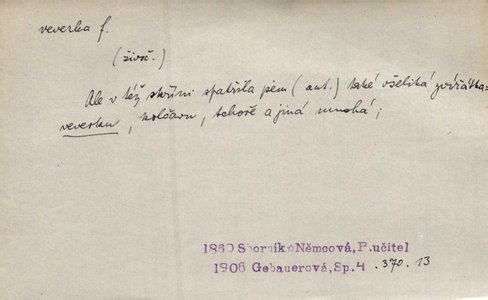 veverka f.
(živoč.)
Ale v též skříni spatřila jsem (aut.) také všeliká zvířátka:
veverku, kolčavu, tchoře a jiná mnohá;
1860 Sborník: Němcová, P. učitel
1906 Gebauerová, Sp. 4 .370.13